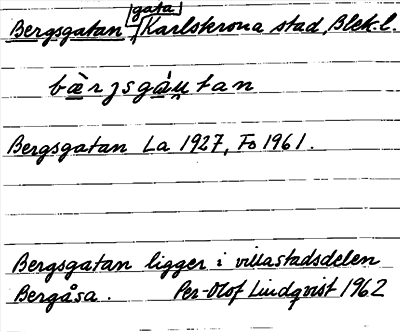 Bergsgatan, gata Karlskrona stad, Blek. l.
bæ̀rjsgáu̯tan
Bergsgatan La 1927, Fo 1961.
Bergsgatan ligger i villastadsdelen
Bergåsa. Per-Olof Lindqvist 1962